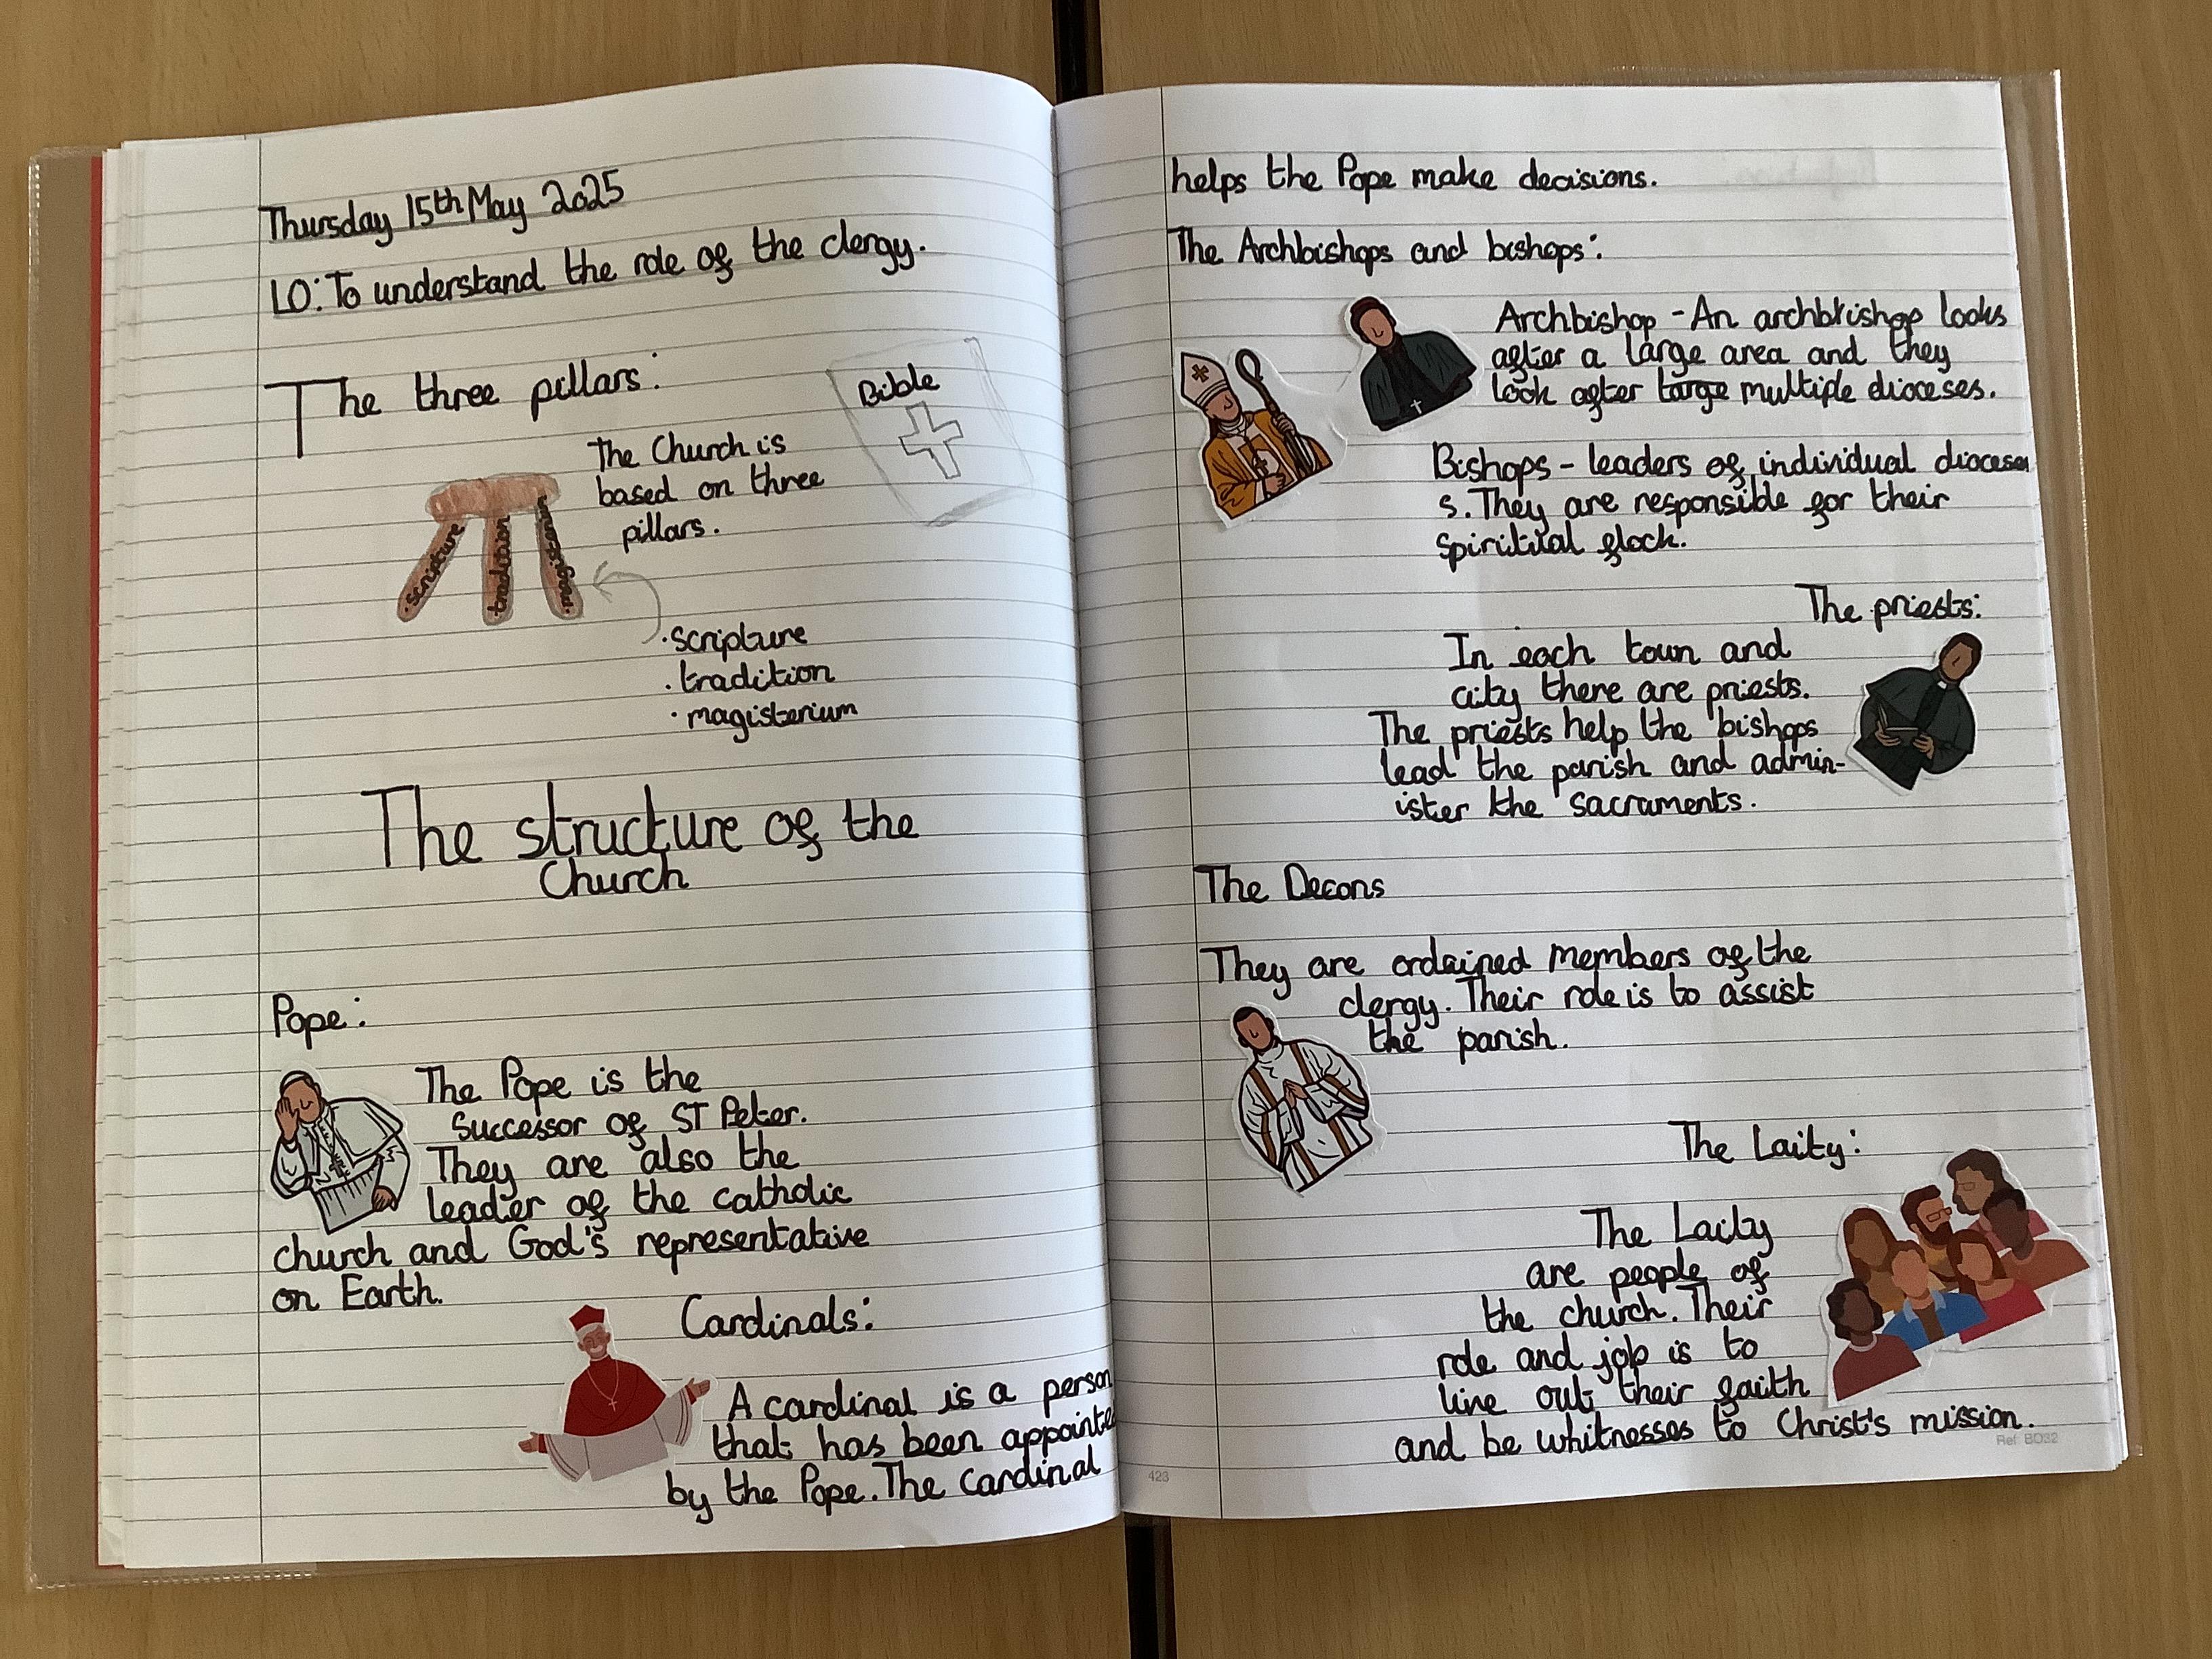 Thursday 15th May 2025
LO: To understand the role of the clergy.
The three pillars:
Bible
The Church is
based on three
pillars.
·scripture
tradition
·magisterium
·scripture
·tradition
·magisterium
The structure of the
Church
Pope:
The Pope is the
Successor of ST Peter.
They are also the
leader of the catholic
church and God's representative
on Earth.
Cardinals:
A cardinal is a person
that has been appointe
by the Pope. The cardinal
helps the Pope make decisions.
The Archbishops and bishops:
Archbishop - An archbishop looks
after a large area and they
look after large multiple dioceses.
Bishops - leaders of individual diocese
s. They are responsible for their
spiritual flock.
The priests:
In each town and
city there are priests.
The priests help the bishops
lead the parish and admin-
ister the sacraments.
The Decons
They are ordained members of the
clergy. Their role is to assist
the parish.
The Laity:
The Laity
are people of
the church. Their
role and job is to
live out their faith
and be whitnesses to Christ's mission.
423
Ref: BO32